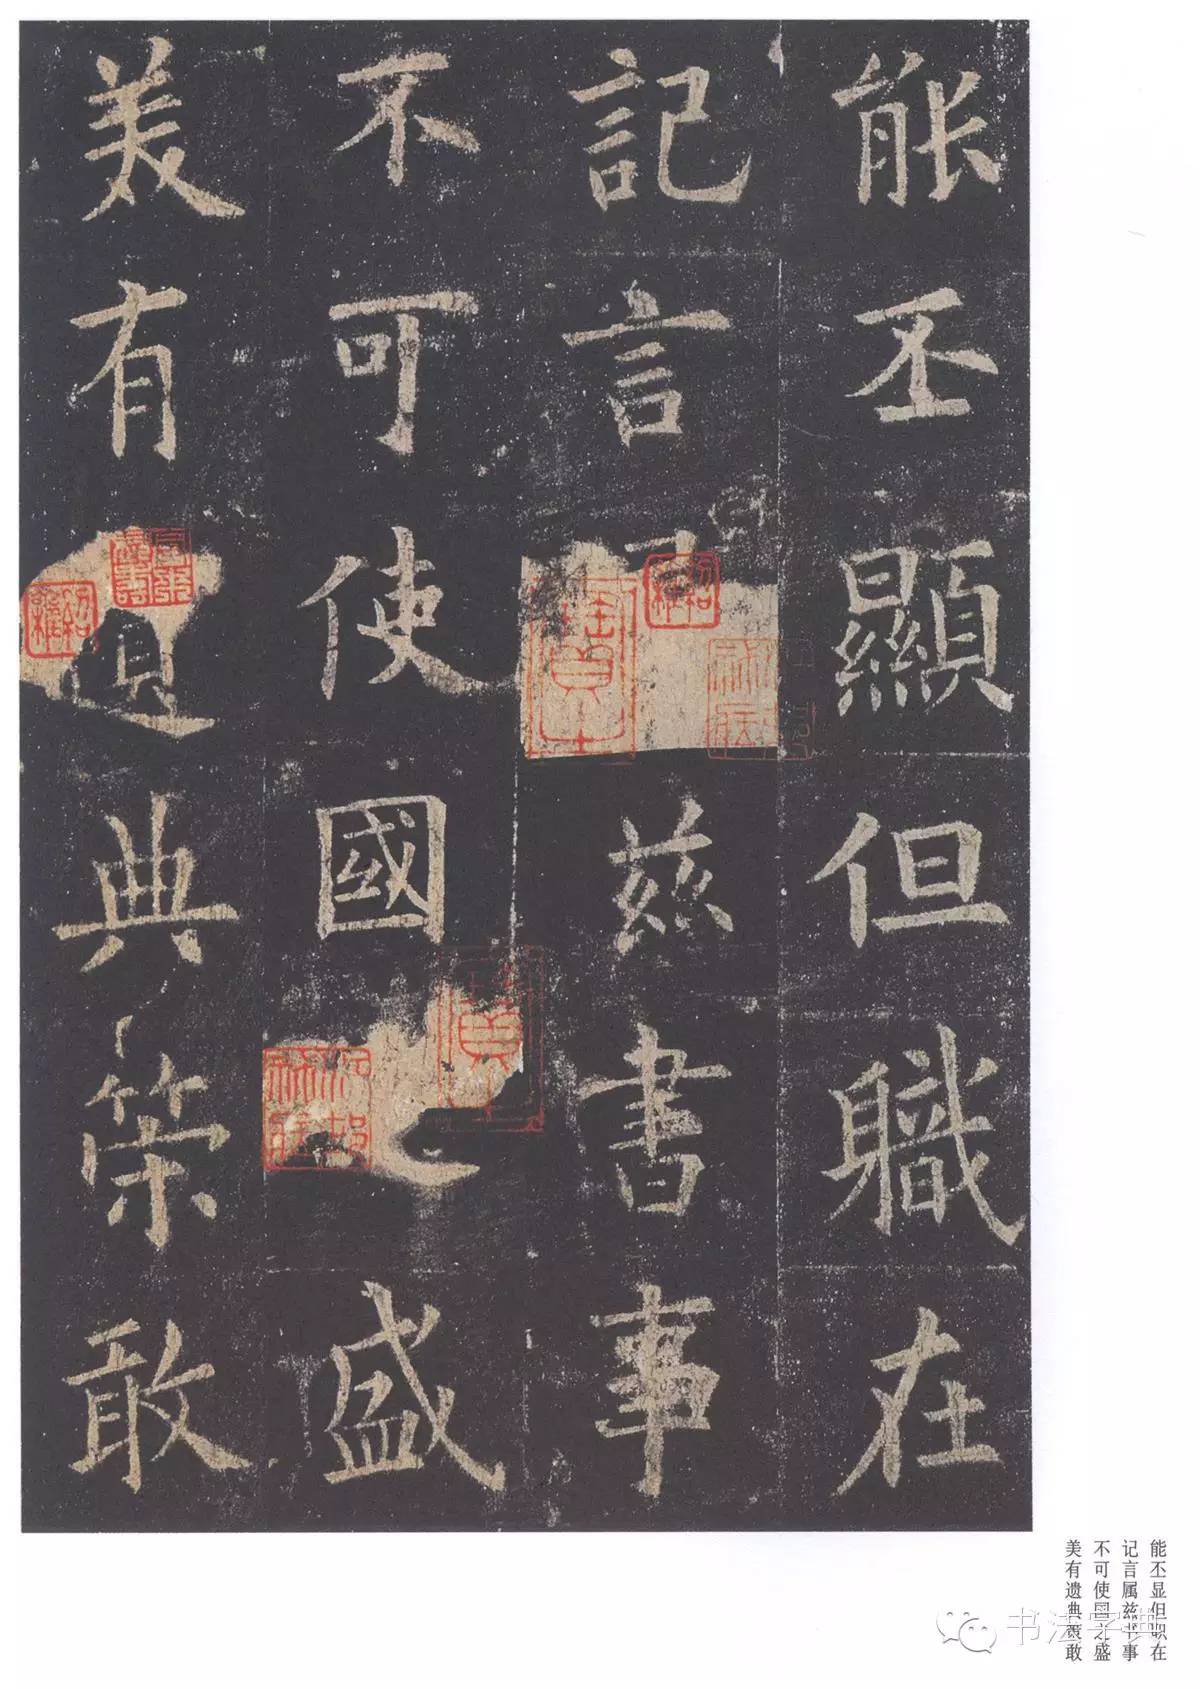 能丕顯但職在
記言兹書事
不可使國之盛
美有遺典策敢
能丕显但职在
记言属兹书事
不可使国之盛
美有遗典策敢
书法字典